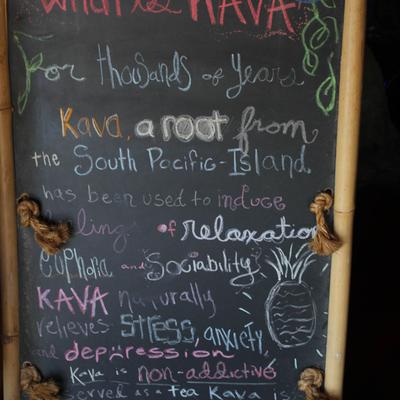 What is KAVA
For thousands of years
Kava, a root from
the South Pacific-Island
has been used to induce
lings of relaxation
euphora and sociability.
KAVA naturally
relieves STRESS, anxiety,
and depression
Kava is non-addictive
served as a tea Kava is